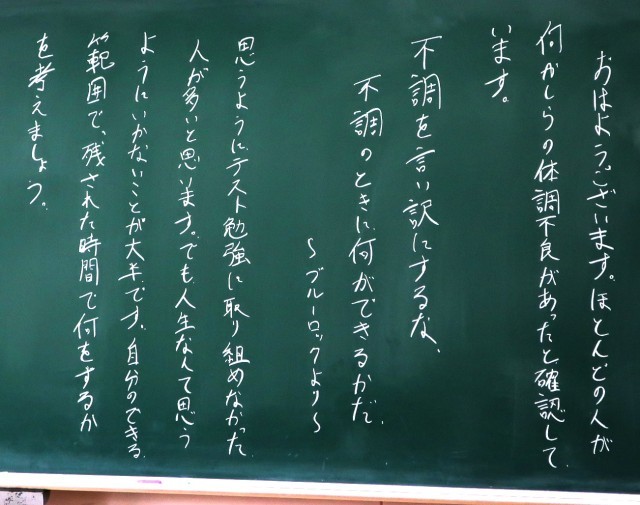 おはようございます。ほとんどの人が
何かしらの体調不良があったと確認して
います。
不調を言い訳にするな、
不調のときに何ができるかだ。
～ブルーロックより～
思うようにテスト勉強に取り組めなかった
人が多いと思います。でも、人生なんて思う
ようにいかないことが大半です。自分のできる
範囲で、残された時間で何をするか
を考えましょう。